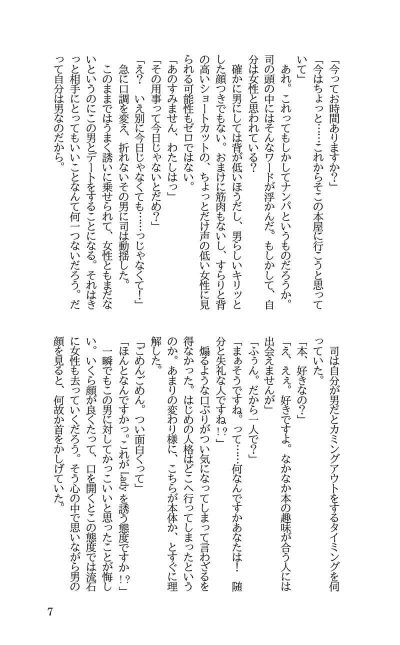 「今ってお時間ありますか？」
「今はちょっと……これからそこの本屋に行こうと思って
いて」
あれ。これってもしかしてナンパというものだろうか。
司の頭の中にはそんなワードが浮かんだ。もしかして、自
分は女性と思われている？
確かに男にしては背が低いほうだし、男らしいキリッと
した顔つきでもない。おまけに筋肉もないし、すらりと背
の高いショートカットの、ちょっとだけ声の低い女性に見
られる可能性もゼロではない。
「あのすみません、わたしはっ」
「その用事って今日じゃないとだめ？」
「え？　いえ別に今日じゃなくても……っじゃなくて！」
急に口調を変え、折れないその男に司は動揺した。
このままではうまく誘いに乗せられて、女性ともまだな
いというのにこの男とデートをすることになる。それはき
っと相手にとってもいいことなんて何一つないだろう。だ
って自分は男なのだから。
司は自分が男だとカミングアウトをするタイミングを伺
っていた。
「本、好きなの？」
「え、えぇ。好きですよ。なかなか本の趣味が合う人には
出会えませんが」
「ふぅん。だから一人で？」
「まぁそうですね。って……何なんですかあなたは！　随
分と失礼な人ですね！？」
煽るような口ぶりがつい気になってしまって言わざるを
得なかった。はじめの人格はどこへ行ってしまったという
のか。あまりの変わり様に、こちらが本体か、とすぐに理
解した。
「ごめんごめん。つい面白くって」
「ほんとなんですかっ。これがLadyを誘う態度ですか！？」
一瞬でもこの男に対してかっこいいと思ったことが悔し
い。いくら顔が良くたって、口を開くとこの態度では流石
に女性も去っていくだろう。そう心の中で思いながら男の
顔を見ると、何故か首をかしげていた。
7